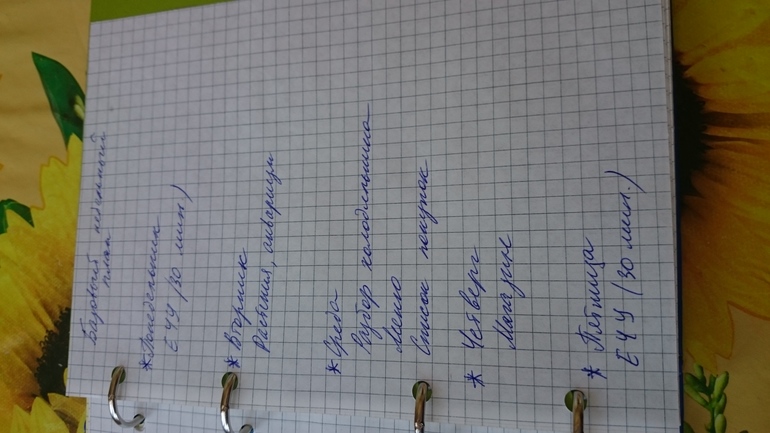 Базовый недельный
план
* Понедельник
ЕЧУ (30 мин.)
* Вторник
Растения, аквариум
* Среда
Разбор холодильника
Меню
Список покупок
* Четверг
Магазин
* Пятница
ЕЧУ (30 мин.)